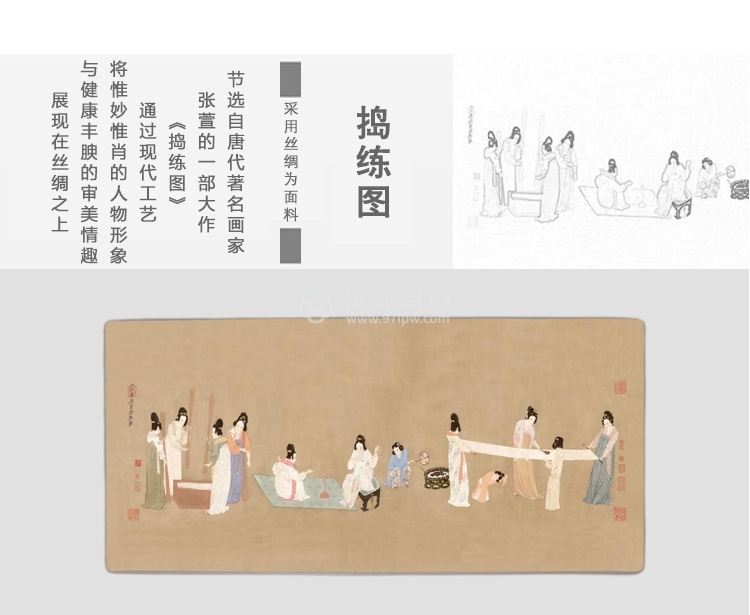 捣练图
采用丝绸为面料
节选自唐代著名画家
张萱的一部大作
《捣练图》
通过现代工艺
将惟妙惟肖的人物形象
与健康丰腴的审美情趣
展现在丝绸之上
www.97ipw.com